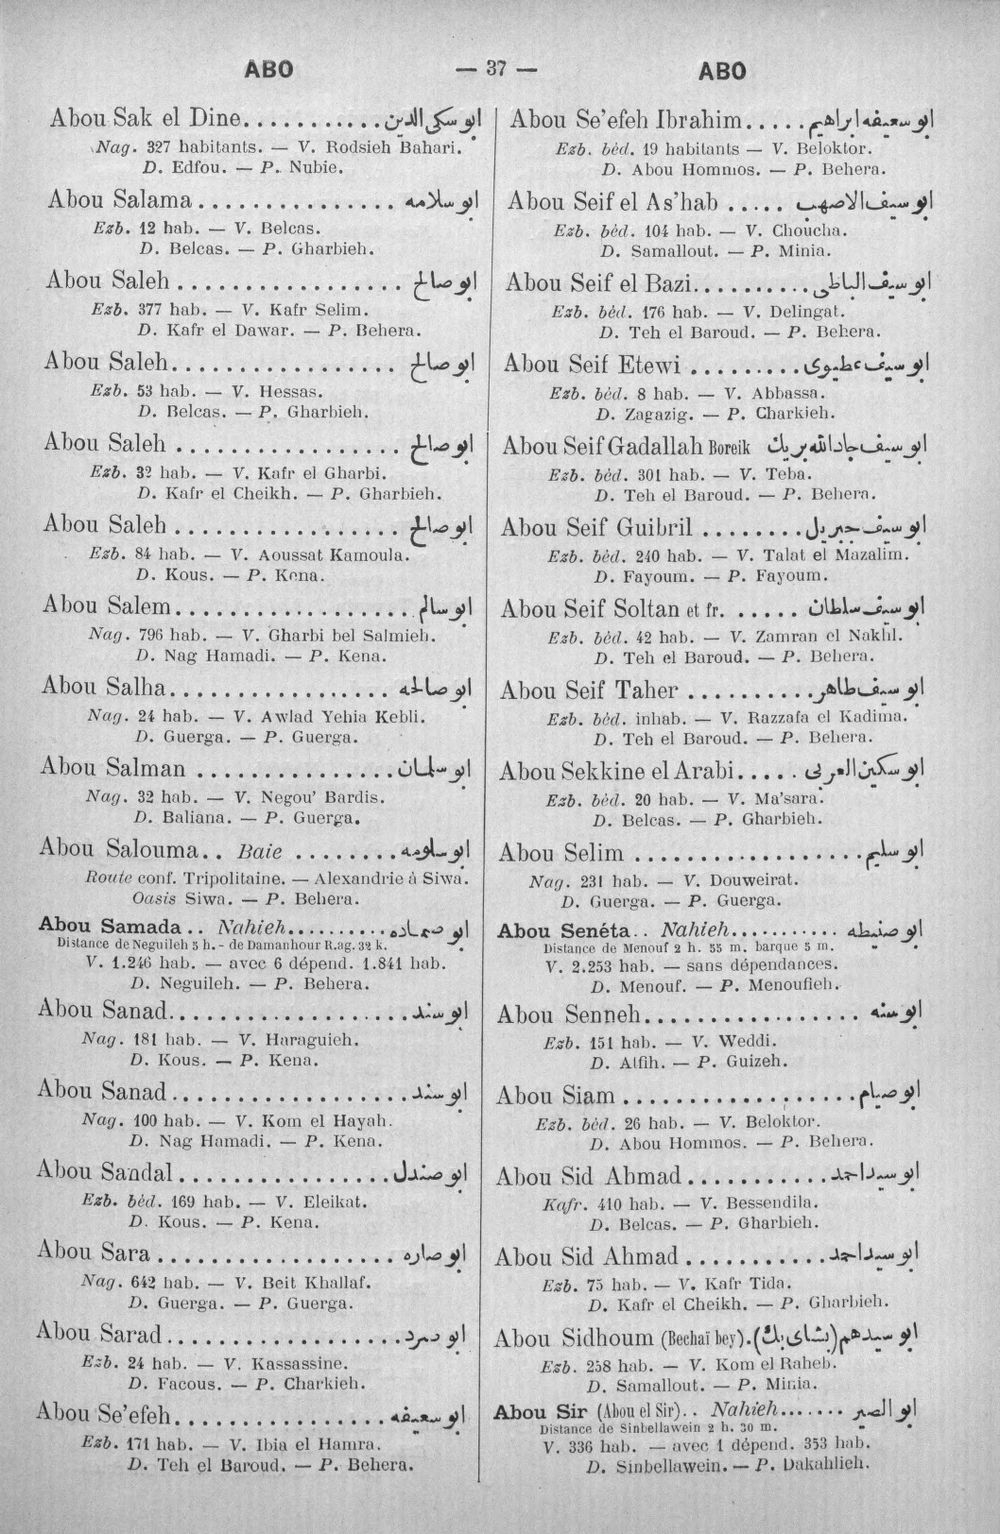 ABO — 37 — ABO
Abou Sak el Dine............ابو سكى الدين
Nag. 327 habitants. — V. Rodsieh Bahari.
D. Edfou. — P. Nubie.
Abou Salama...............ابو سلامه
Ezb. 12 hab. — V. Belcas.
D. Belcas. — P. Gharbieh.
Abou Saleh.................ابو صالح
Ezb. 377 hab. — V. Kafr Selim.
D. Kafr el Dawar. — P. Behera.
Abou Saleh.................ابو صالح
Ezb. 53 hab. — V. Hessas.
D. Belcas. — P. Gharbieh.
Abou Saleh.................ابو صالح
Ezb. 32 hab. — V. Kafr el Gharbi.
D. Kafr el Cheikh. — P. Gharbieh.
Abou Saleh.................ابو صالح
Ezb. 84 hab. — V. Aoussat Kamoula.
D. Kous. — P. Kena.
Abou Salem..................ابو سالم
Nag. 796 hab. — V. Gharbi bel Salmieh.
D. Nag Hamadi. — P. Kena.
Abou Salha.................ابو صالحه
Nag. 24 hab. — V. Awlad Yehia Kebli.
D. Guerga. — P. Guerga.
Abou Salman...............ابو سلمان
Nag. 32 hab. — V. Negou' Bardis.
D. Baliana. — P. Guerga.
Abou Salouma.. Baie ........ابو سلومه
Route conf. Tripolitaine. — Alexandrie à Siwa.
Oasis Siwa. — P. Behera.
Abou Samada.. Nahieh..........ابو صماده
Distance de Neguileh 5 h. - de Damanhour R.ag. 32 k.
V. 1.246 hab. — avec 6 dépend. 1.841 hab.
D. Neguileh. — P. Behera.
Abou Sanad..................ابو سند
Nag. 181 hab. — V. Haraguieh.
D. Kous. — P. Kena.
Abou Sanad..................ابو سند
Nag. 100 hab. — V. Kom el Hayah.
D. Nag Hamadi. — P. Kena.
Abou Sandal................ابو صندل
Ezb. béd. 169 hab. — V. Eleikat.
D. Kous. — P. Kena.
Abou Sara..................ابو صاره
Nag. 642 hab. — V. Beit Khallaf.
D. Guerga. — P. Guerga.
Abou Sarad..................ابو صرد
Ezb. 24 hab. — V. Kassassine.
D. Facous. — P. Charkieh.
Abou Se'efeh................ابو سعيفه
Ezb. 171 hab. — V. Ibia el Hamra.
D. Teh el Baroud. — P. Behera.
Abou Se'efeh Ibrahim.....ابو سعيفه ابراهيم
Ezb. béd. 19 habitants — V. Beloktor.
D. Abou Hommos. — P. Behera.
Abou Seif el As'hab.....ابو سيف الاصهب
Ezb. béd. 104 hab. — V. Choucha.
D. Samallout. — P. Minia.
Abou Seif el Bazi..........ابو سيف الباظى
Ezb. béd. 176 hab. — V. Delingat.
D. Teh el Baroud. — P. Behera.
Abou Seif Etewi.........ابو سيف عطيوى
Ezb. béd. 8 hab. — V. Abbassa.
D. Zagazig. — P. Charkieh.
Abou Seif Gadallah Boreik ابو سيف جاد الله بريك
Ezb. béd. 301 hab. — V. Teba.
D. Teh el Baroud. — P. Behera.
Abou Seif Guibril........ابو سيف جبريل
Ezb. béd. 240 hab. — V. Talat el Mazalim.
D. Fayoum. — P. Fayoum.
Abou Seif Soltan et fr. .....ابو سيف سلطان
Ezb. béd. 42 hab. — V. Zamran el Nakhl.
D. Teh el Baroud. — P. Behera.
Abou Seif Taher..........ابو سيف طاهر
Ezb. béd. inhab. — V. Razzafa el Kadima.
D. Teh el Baroud. — P. Behera.
Abou Sekkine el Arabi.....ابو سكين العربى
Ezb. béd. 20 hab. — V. Ma'sara.
D. Belcas. — P. Gharbieh.
Abou Selim..................ابو سليم
Nag. 231 hab. — V. Douweirat.
D. Guerga. — P. Guerga.
Abou Senéta.. Nahieh...........ابو صنيطه
Distance de Menouf 2 h. 55 m. barque 5 m.
V. 2.253 hab. — sans dépendances.
D. Menouf. — P. Menoufieh.
Abou Senneh.................ابو سنه
Ezb. 151 hab. — V. Weddi.
D. Atfih. — P. Guizeh.
Abou Siam..................ابو صيام
Ezb. béd. 26 hab. — V. Beloktor.
D. Abou Hommos. — P. Behera.
Abou Sid Ahmad...........ابو سيد احمد
Kafr. 410 hab. — V. Bessendila.
D. Belcas. — P. Gharbieh.
Abou Sid Ahmad...........ابو سيد احمد
Ezb. 75 hab. — V. Kafr Tida.
D. Kafr el Cheikh. — P. Gharbieh.
Abou Sidhoum (Bechaï bey).ابو سيدهم (بشاى بك)
Ezb. 258 hab. — V. Kom el Raheb.
D. Samallout. — P. Minia.
Abou Sir (Abou el Sir).. Nahieh.......ابو الصير
Distance de Sinbellawein 2 h. 30 m.
V. 336 hab. — avec 1 dépend. 353 hab.
D. Sinbellawein. — P. Dakahlieh.